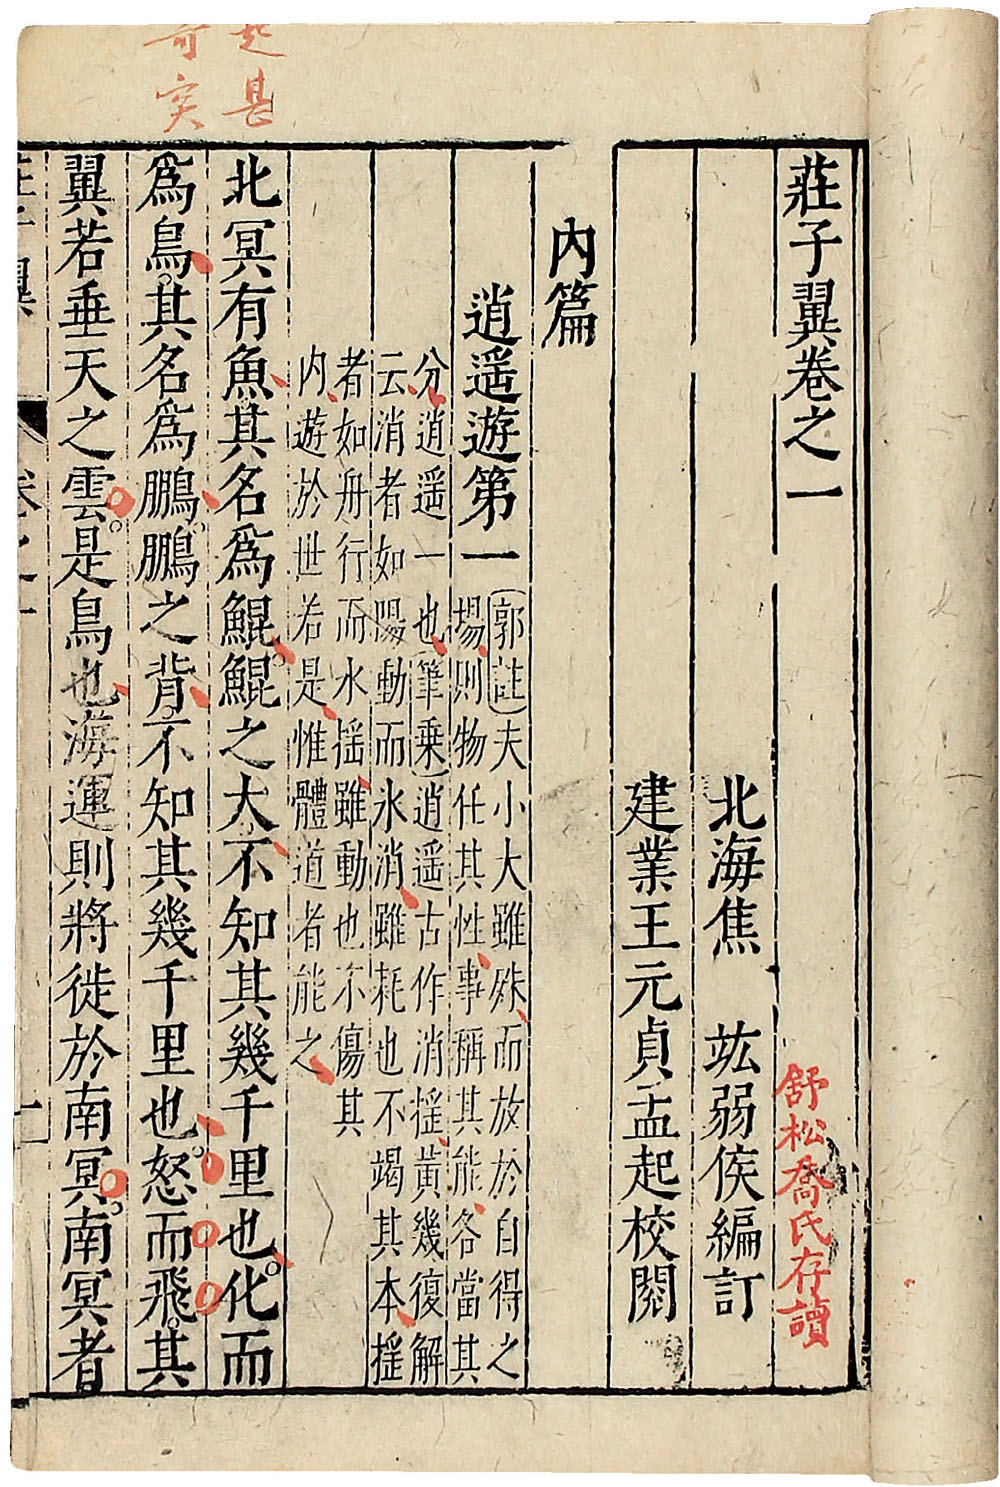 莊子翼卷之一
舒松喬氏存讀
北海焦 竑弱侯編訂
建業王元貞孟起校閱
內篇
逍遥遊第一
郭註夫小大雖殊而放於自得之
場則物任其性事稱其能各當其
分逍遥一也筆乗逍遥古作消揺黄幾復解
云消者如陽動而氷消雖耗也不竭其本揺
者如舟行而水揺雖動也不傷其
内遊於世若是惟體道者能之
北冥有魚其名爲鯤鯤之大不知其幾千里也化而
爲鳥其名爲鵬鵬之背不知其幾千里也怒而飛其
翼若垂天之雲是鳥也海運則將徙於南冥南冥者
甚
突